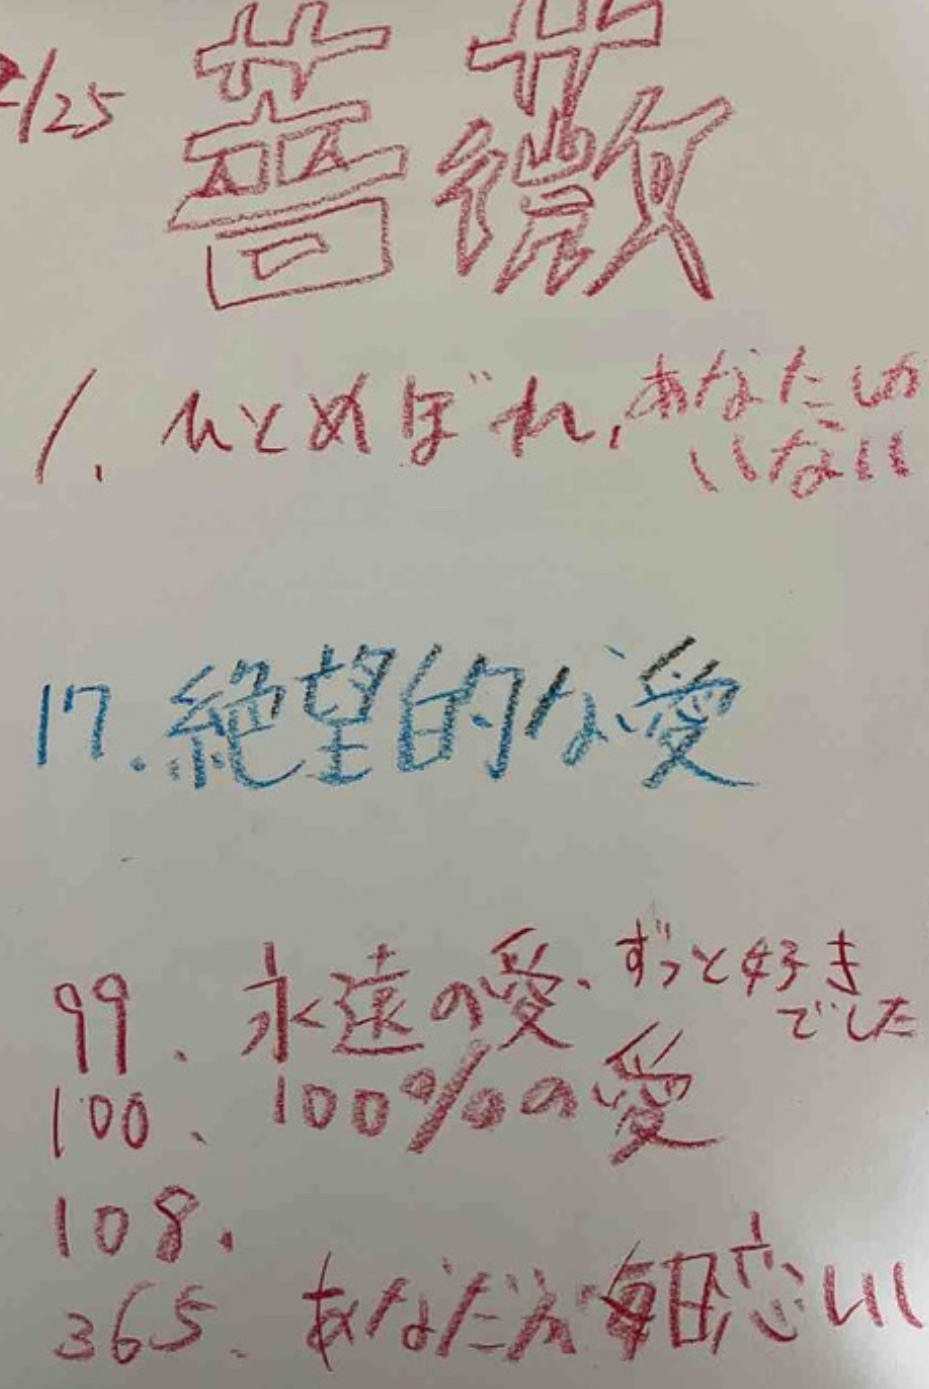 /25
薔薇
1. ひとめぼれ、あなたしか
いない
17. 絶望的な愛
99、永遠の愛、ずっと好き
でした
100、100%の愛
108.
365、あなたが毎日恋しい